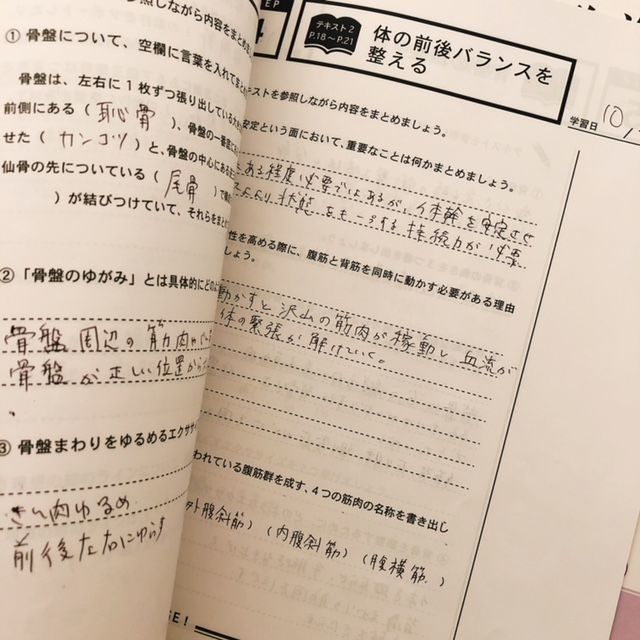 参照しながら内容をまとめま
① 骨盤について、空欄に言葉を入れてま
骨盤は、左右に1枚ずつ張り出している
前側にある( 恥骨 )、骨盤の一番
せた( カンコツ )と、骨盤の中心にある
仙骨の先についている( 尾骨 )で
)が結びつけていて、それらをまと
② 「骨盤のゆがみ」とは具体的にど
骨盤周辺の筋肉や
骨盤が正しい位置から
③ 骨盤まわりをゆるめるエクササ
きん肉ゆるめ
前後左右に
EP
4
テキスト2
P.18~P.21
体の前後バランスを
整える
学習日 10/
キストを参照しながら内容をまとめましょう。
安定という面において、重要なことは何かまとめましょう。
ある程度必要ではあるが、体幹を安定させ
状態をキープする持続力が必要
性を高める際に、腹筋と背筋を同時に動かす必要がある理由
しょう。
動かすと沢山の筋肉が稼動し血流が
体の緊張が解けていく。
われている腹筋群を成す、4つの筋肉の名称を書き出し
外腹斜筋)(内腹斜筋)(腹横筋)
GE!